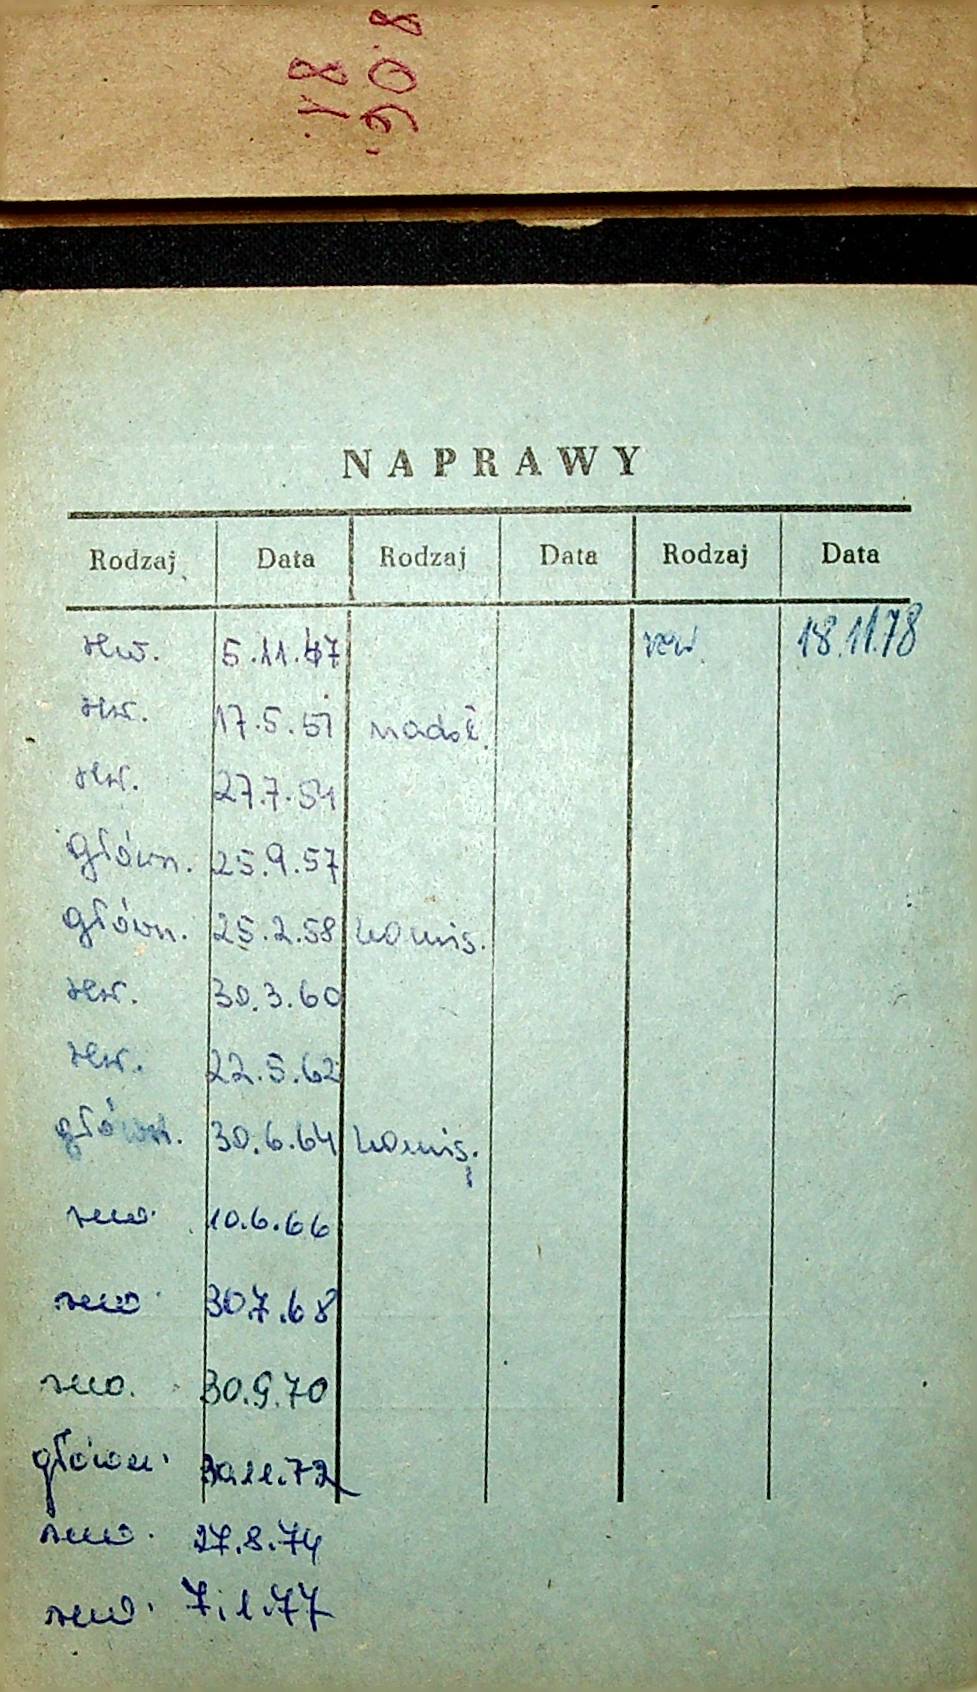 18
90.8
NAPRAWY
Rodzaj Data Rodzaj Data Rodzaj Data
rew. 5.11.47 rew. 18.11.78
rew. 17.5.51 nadzł.
rew. 27.7.54
główn. 25.9.57
główn. 25.2.58 komis.
rew. 30.3.60
rew. 22.5.62
główn. 30.6.64 komis.
rew. 10.6.66
rew. 30.7.68
rew. 30.9.70
główn. 30.11.72
rew. 27.8.74
rew. 7.1.77